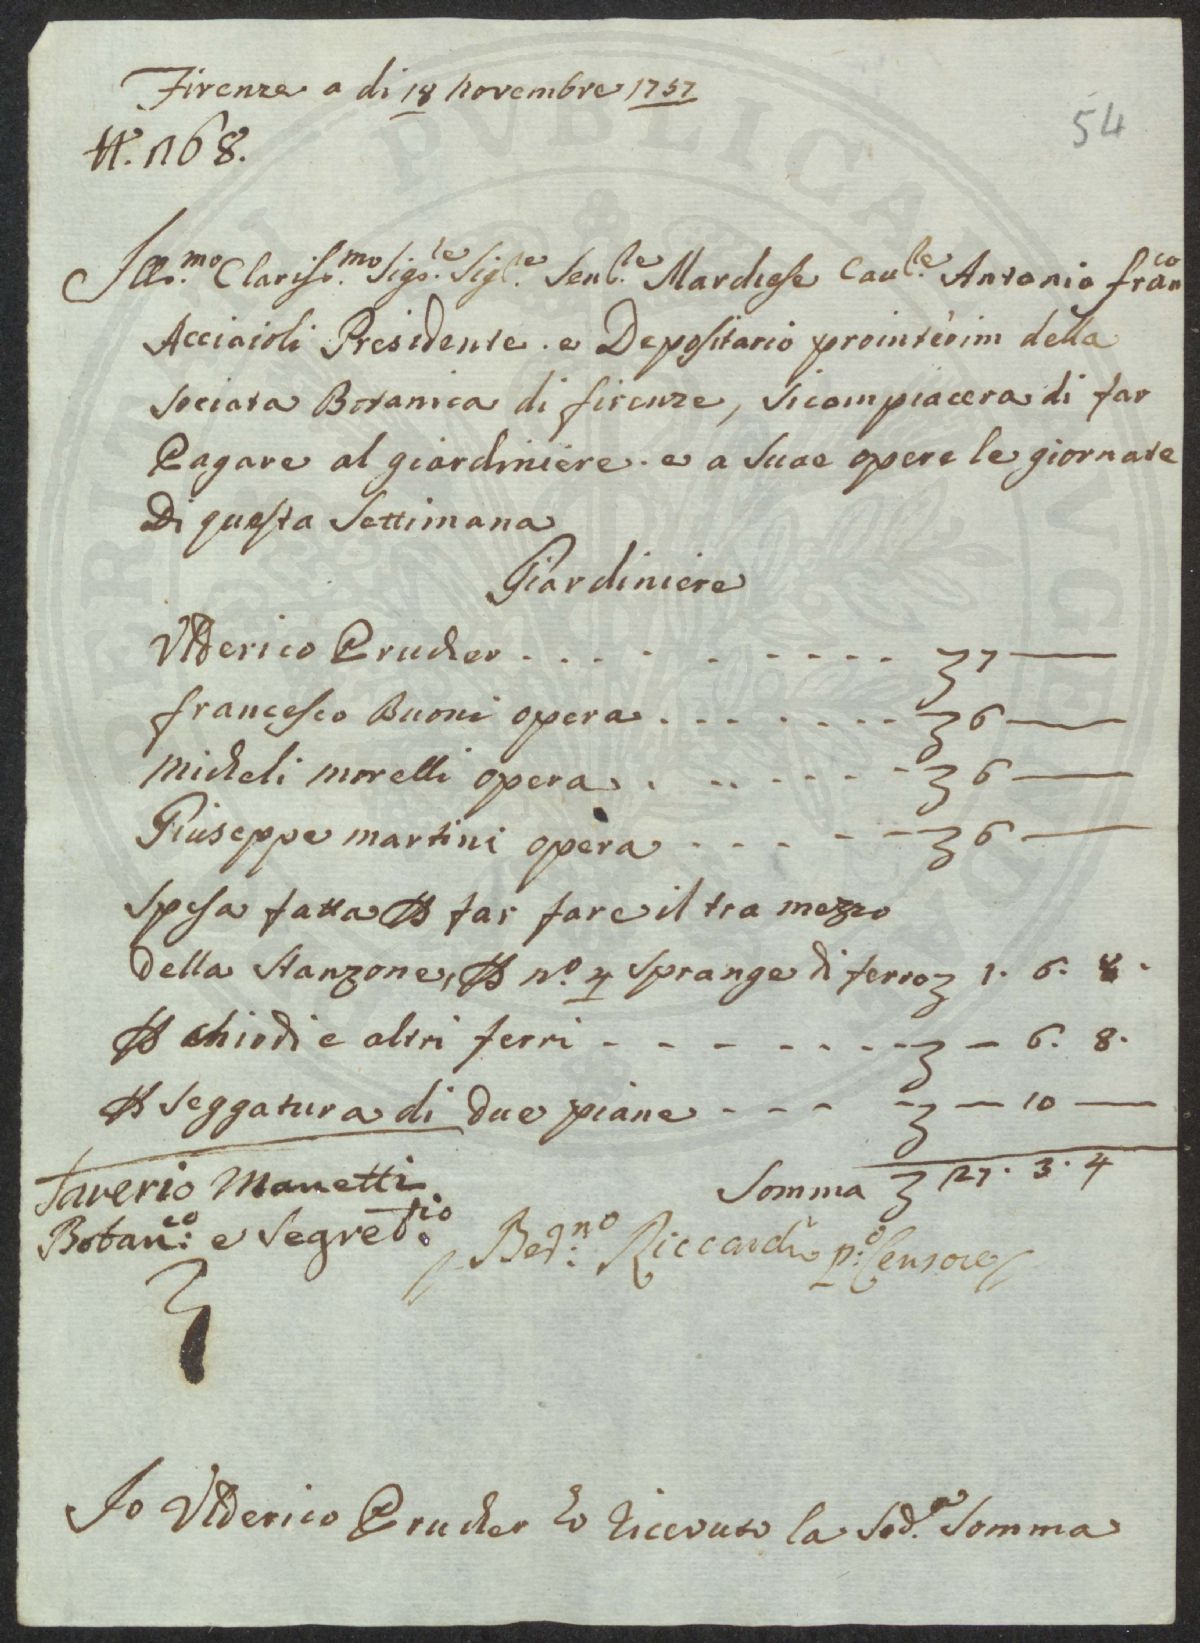 Firenze a di 18 Novembre 1757
54
N. 168.
Ill.mo Clariss.mo Sigs.re Sig.re Sen.le Marchese Caul.e Antonio fran.co
Acciaioli Presidente e Depositario prointerim della
sociata Botanica di firenze, si compiacera di far
Pagare al giardiniere e a suoe opere le giornate
Di questa settimana
Giardiniere
Ulderico Prucher . . . . . . . . . . 7 —
francesco Buoni opera . . . . . . . . 6 —
Micheli morelli opera . . . . . . . 6 —
Giuseppe martini opera . . . . - - 6 —
Spesa fatta P far fare il tra mezzo
della stanzone, P no. 4 sprange di ferro 1. 6. 8.
P chiodi e altri ferri - - - - - - - - — 6. 8.
P seggatura di due piane - - - - — 10 —
Somma 27. 3. 4
Saverio Manetti
Botan.co e Segret.rio
Bed.no Riccardi p.o Censore
Io Ulderico Prucher ho riceuuto la sod.a somma
PVBLICAE